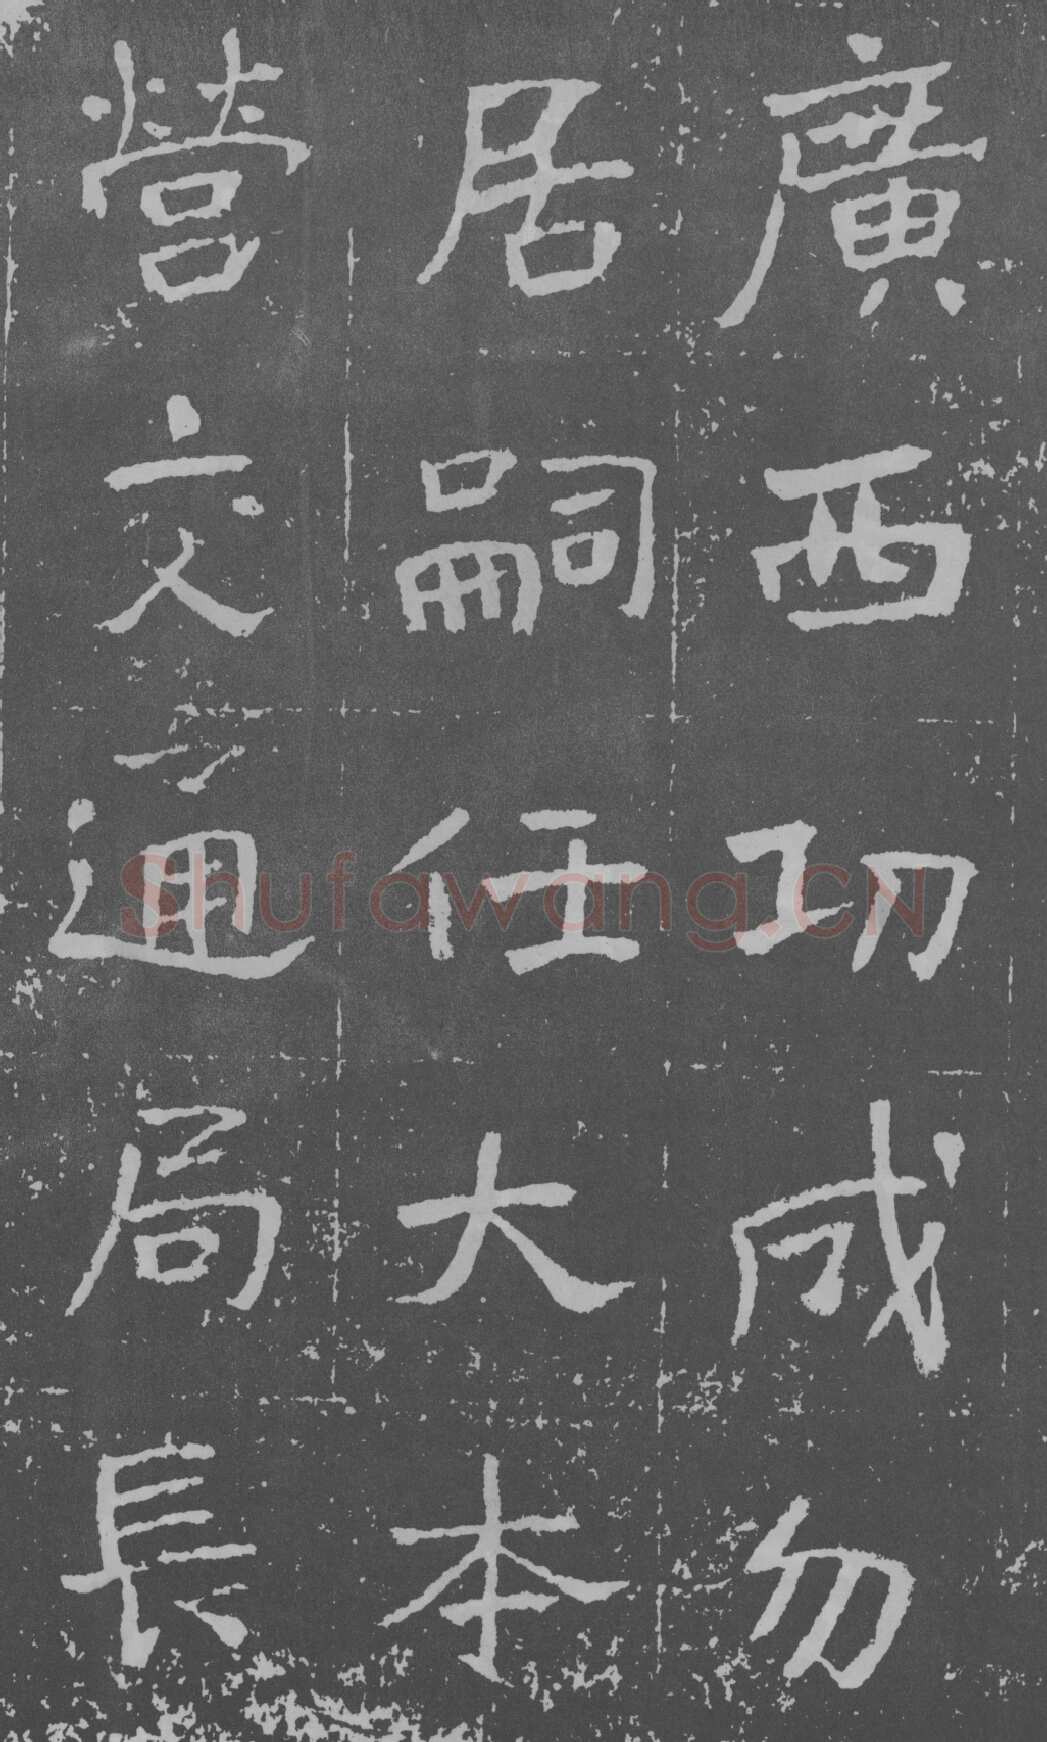 廣西功成勿
居嗣任大本
營交通局長
Shufawang.CN